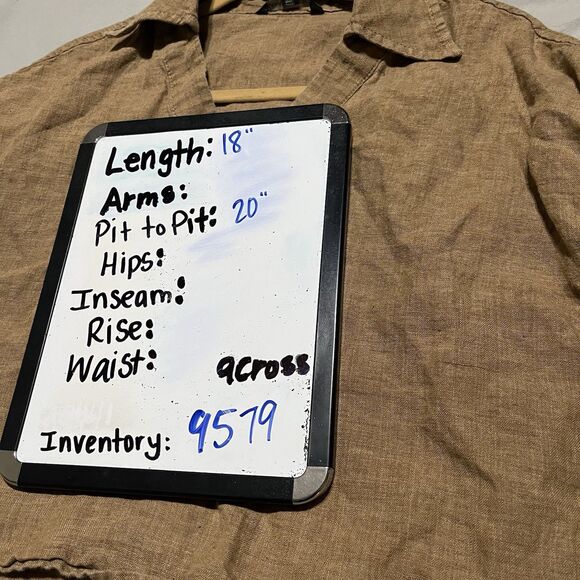 Length: 18"
Arms:
Pit to Pit: 20"
Hips:
Inseam:
Rise:
Waist: across
Inventory: 9579